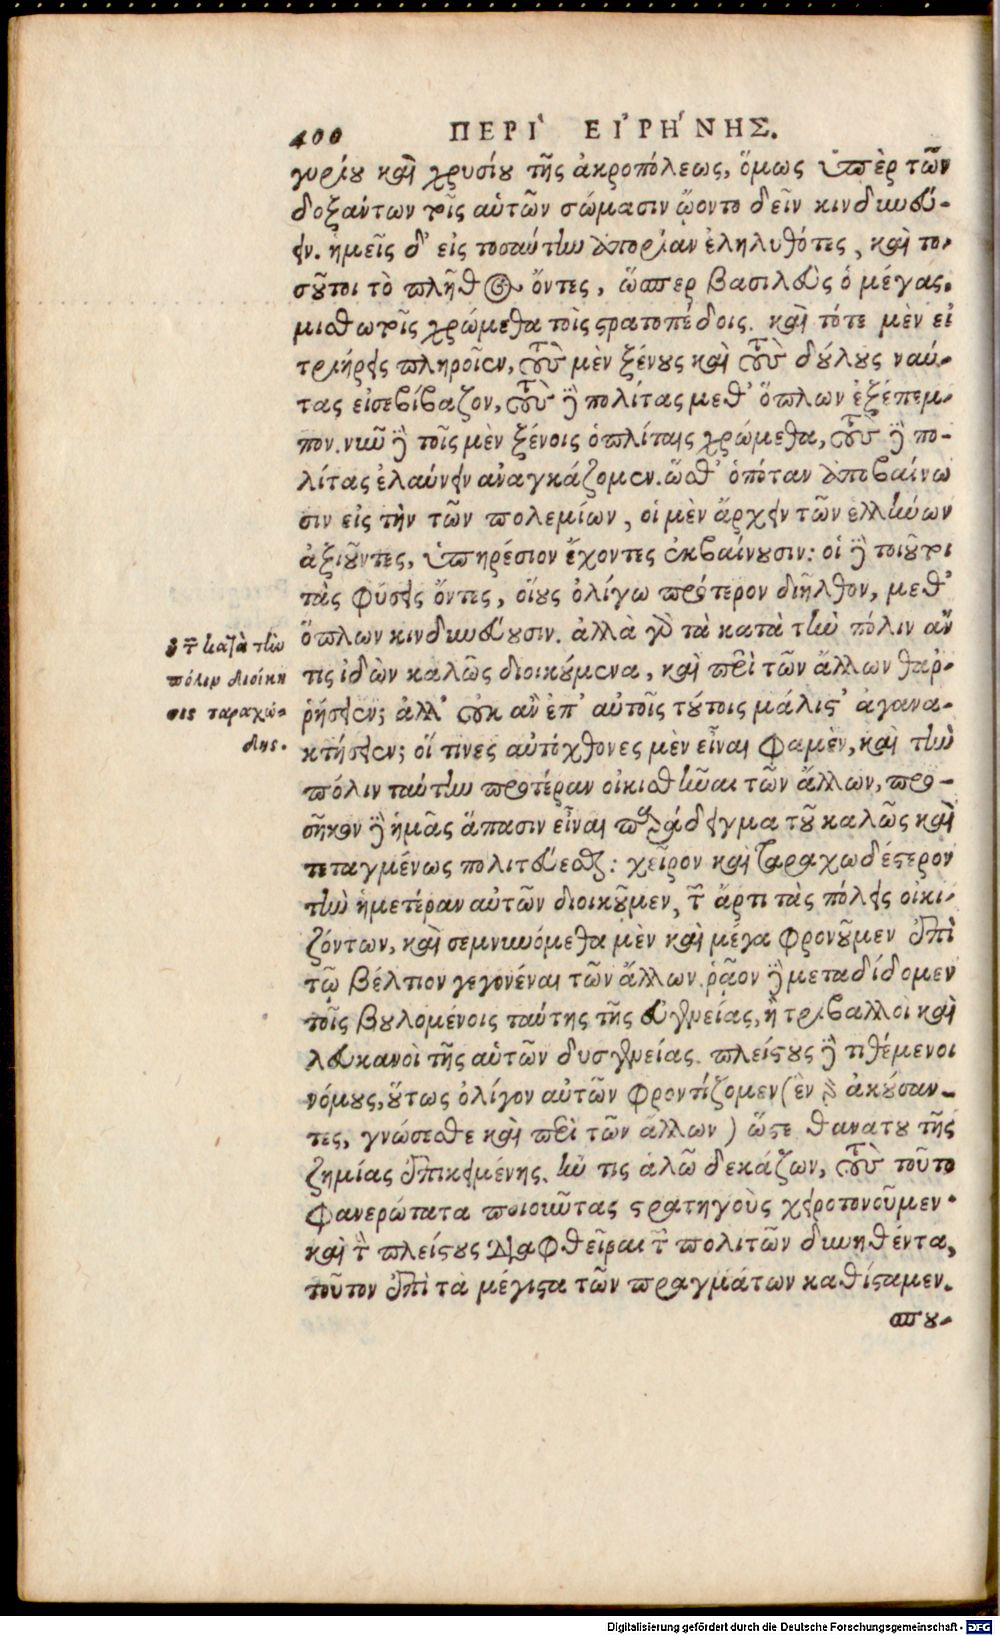 400 ΠΕΡΙ ΕΙΡΗΝΗΣ.
γυρίου καὶ χρυσίου τῆς ἀκροπόλεως, ὅμως ὑπὲρ τῶν
δοξάντων τοῖς αὑτῶν σώμασιν ᾤοντο δεῖν κινδυνεύ-
ειν. ἡμεῖς δ' εἰς τοσαύτην ἀπορίαν ἐληλυθότες, καὶ το-
σοῦτοι τὸ πλῆθος ὄντες, ὥσπερ βασιλεὺς ὁ μέγας,
μισθωτοῖς χρώμεθα τοῖς στρατοπέδοις. καὶ τότε μὲν εἰ
τριήρεις πληροῖεν, τοὺς μὲν ξένους καὶ τοὺς δούλους ναύ-
τας εἰσεβίβαζον, τοὺς δὲ πολίτας μεθ' ὅπλων ἐξέπεμ-
πον. νῦν δὲ τοῖς μὲν ξένοις ὁπλίταις χρώμεθα, τοὺς δὲ πο-
λίτας ἐλαύνειν ἀναγκάζομεν. ὥσθ' ὁπόταν ἀποβαίνω
σιν εἰς τὴν τῶν πολεμίων, οἱ μὲν ἄρχειν τῶν ἑλλήνων
ἀξιοῦντες, ὑπηρέσιον ἔχοντες ἐκβαίνουσιν: οἱ δὲ τοιοῦτοι
τὰς φύσεις ὄντες, οἵους ὀλίγω πρότερον διῆλθον, μεθ'
ὅπλων κινδυνεύουσιν. ἀλλὰ γὰρ τὰ κατὰ τὴν πόλιν ἄν
τις ἰδὼν καλῶς διοικούμενα, καὶ περὶ τῶν ἄλλων θαρ-
ρήσειεν; ἀλλ' οὐκ ἂν ἐπ' αὐτοῖς τούτοις μάλιστ' ἀγανα-
κτήσειεν; οἵ τινες αὐτόχθονες μὲν εἶναι φαμὲν, καὶ τὴν
πόλιν ταύτην προτέραν οἰκισθῆναι τῶν ἄλλων, προ-
σῆκον δὲ ἡμᾶς ἅπασιν εἶναι παράδειγμα τοῦ καλῶς καὶ
τεταγμένως πολιτεύεσθαι: χεῖρον καὶ ταραχωδέστερον
τὴν ἡμετέραν αὐτῶν διοικοῦμεν, τῶν ἄρτι τὰς πόλεις οἰκι-
ζόντων, καὶ σεμνυνόμεθα μὲν καὶ μέγα φρονοῦμεν ἐπὶ
τῷ βέλτιον γεγονέναι τῶν ἄλλων. ῥᾷον δὲ μεταδίδομεν
τοῖς βουλομένοις ταύτης τῆς εὐγενείας, ἢ τριβαλλοὶ καὶ
λευκανοὶ τῆς αὑτῶν δυσγενείας. πλείστους δὲ τιθέμενοι
νόμους, οὕτως ὀλίγον αὐτῶν φροντίζομεν (ἓν γὰρ ἀκούσαν-
τες, γνώσεσθε καὶ περὶ τῶν ἄλλων) ὥστε θανάτου τῆς
ζημίας ἐπικειμένης, ἤν τις ἁλῶ δεκάζων, τοὺς τοῦτο
φανερώτατα ποιοῦντας στρατηγοὺς χειροτονοῦμεν·
καὶ τὸν πλείστους διαφθεῖραι τῶν πολιτῶν δυνηθέντα,
τοῦτον ἐπὶ τὰ μέγιστα τῶν πραγμάτων καθίσταμεν.
σπου-
κατὰ τὴν
πόλιν διοίκη
σις ταραχώ-
δης.
Digitalisierung gefördert durch die Deutsche Forschungsgemeinschaft - DFG